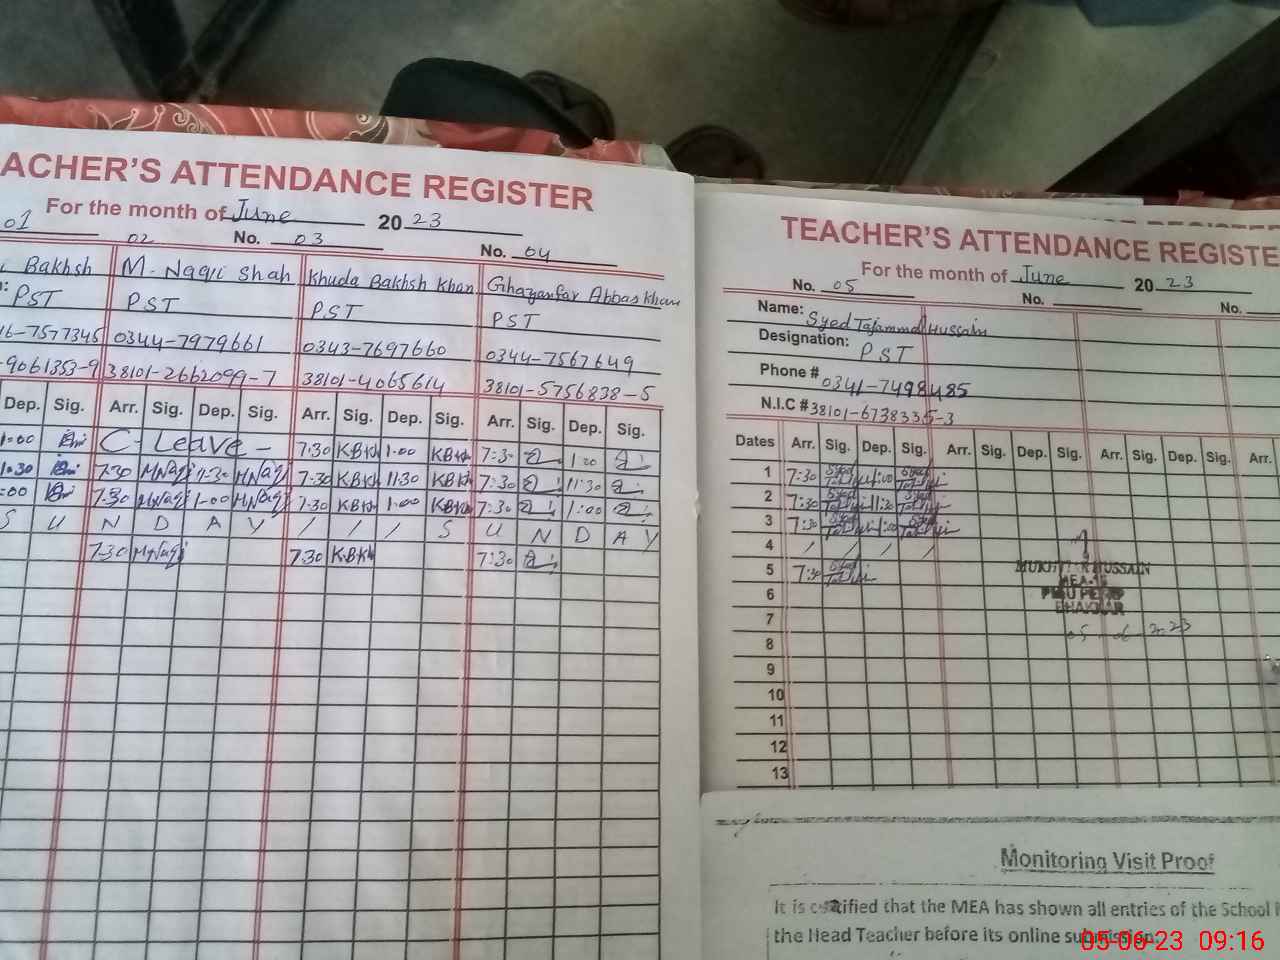 ACHER'S ATTENDANCE REGISTER
For the month of June 2023
01 02 No. 03 No. 04
Bakhsh M. Naqi Shah Khuda Bakhsh Khan Ghazanfar Abbas Khan
PST PST PST PST
16-7577345 0344-7979661 0343-7697660 0344-7567649
-9061353-9 38101-2662099-7 38101-4065614 38101-5756838-5
Dep. Sig. Arr. Sig. Dep. Sig. Arr. Sig. Dep. Sig. Arr. Sig. Dep. Sig.
1:00 C- Leave - 7:30 KBKh 1:00 KBKh 7:30 1:00
1:30 7:30 MNaqi 11:30 MNaqi 7:30 KBKh 11:30 KBKh 7:30 11:30
:00 7:30 MNaqi 1:00 MNaqi 7:30 KBKh 1:00 KBKh 7:30 1:00
S U N D A Y / / / S U N D A Y
7:30 MNaqi 7:30 KBKh 7:30
TEACHER'S ATTENDANCE REGISTE
For the month of June 2023
No. 05 No. No.
Name: Syed Tajammal Hussain
Designation: PST
Phone # 0341-7498485
N.I.C # 38101-6738335-3
Dates Arr. Sig. Dep. Sig. Arr. Sig. Dep. Sig. Arr. Sig. Dep. Sig. Arr.
1 7:30 Syed 1:00 Syed
2 7:30 Syed 11:30 Syed
3 7:30 Syed 1:00 Syed
4 / / / /
5 7:30 Syed
6
7
8
9
10
11
12
13
MUKHTIAR HUSSAIN
MEA-15
BHAKKAR
05-06-2023
Monitoring Visit Proof
It is certified that the MEA has shown all entries of the School
the Head Teacher before its online submission.
05-06-23 09:16